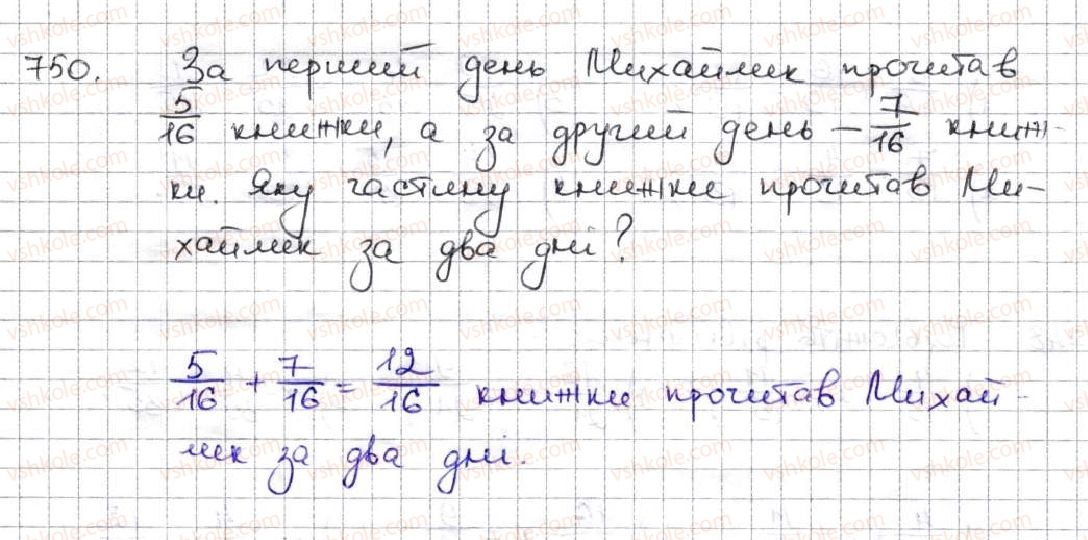 750. За перший день Михайлик прочитав
5/16 книжки, а за другий день – 7/16 книж-
ки. Яку частину книжки прочитав Ми-
хайлик за два дні?
5/16 + 7/16 = 12/16 книжки прочитав Михай-
лик за два дні.